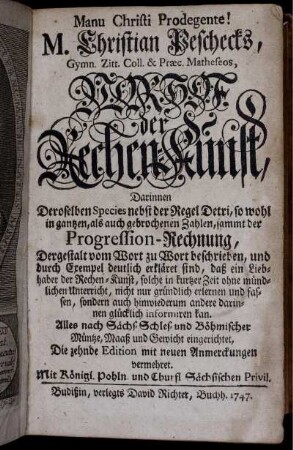 Manu Christi Prodegente!
M. Christian Peschecks,
Gymn. Zitt. Coll. & Præc. Matheseos,
VORHOF
der
Rechen-Kunst,
Darinnen
Deroselben Species nebst der Regel Detri, so wohl
in gantzen, als auch gebrochenen Zahlen, sammt der
Progression-Rechnung,
Dergestalt vom Wort zu Wort beschrieben, und
durch Exempel deutlich erkläret sind, daß ein Lieb-
haber der Rechen-Kunst, solche in kurtzer Zeit ohne münd-
lichen Unterricht, nicht nur gründlich erlernen und fas-
sen, sondern auch hinwiederum andere darin-
nen glücklich informiren kan.
Alles nach Sächs. Schles. und Böhmischer
Müntze, Maaß und Gewicht eingerichtet,
Die zehnde Edition mit neuen Anmerckungen
vermehret.
Mit Königl. Pohln. und Churfl. Sächsischen Privil.
Budißin, verlegts David Richter, Buchh. 1747.